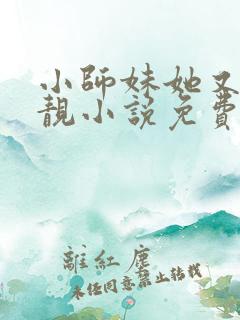 小師妹她又
靚小說免費
離紅塵
未任同意禁止轉載